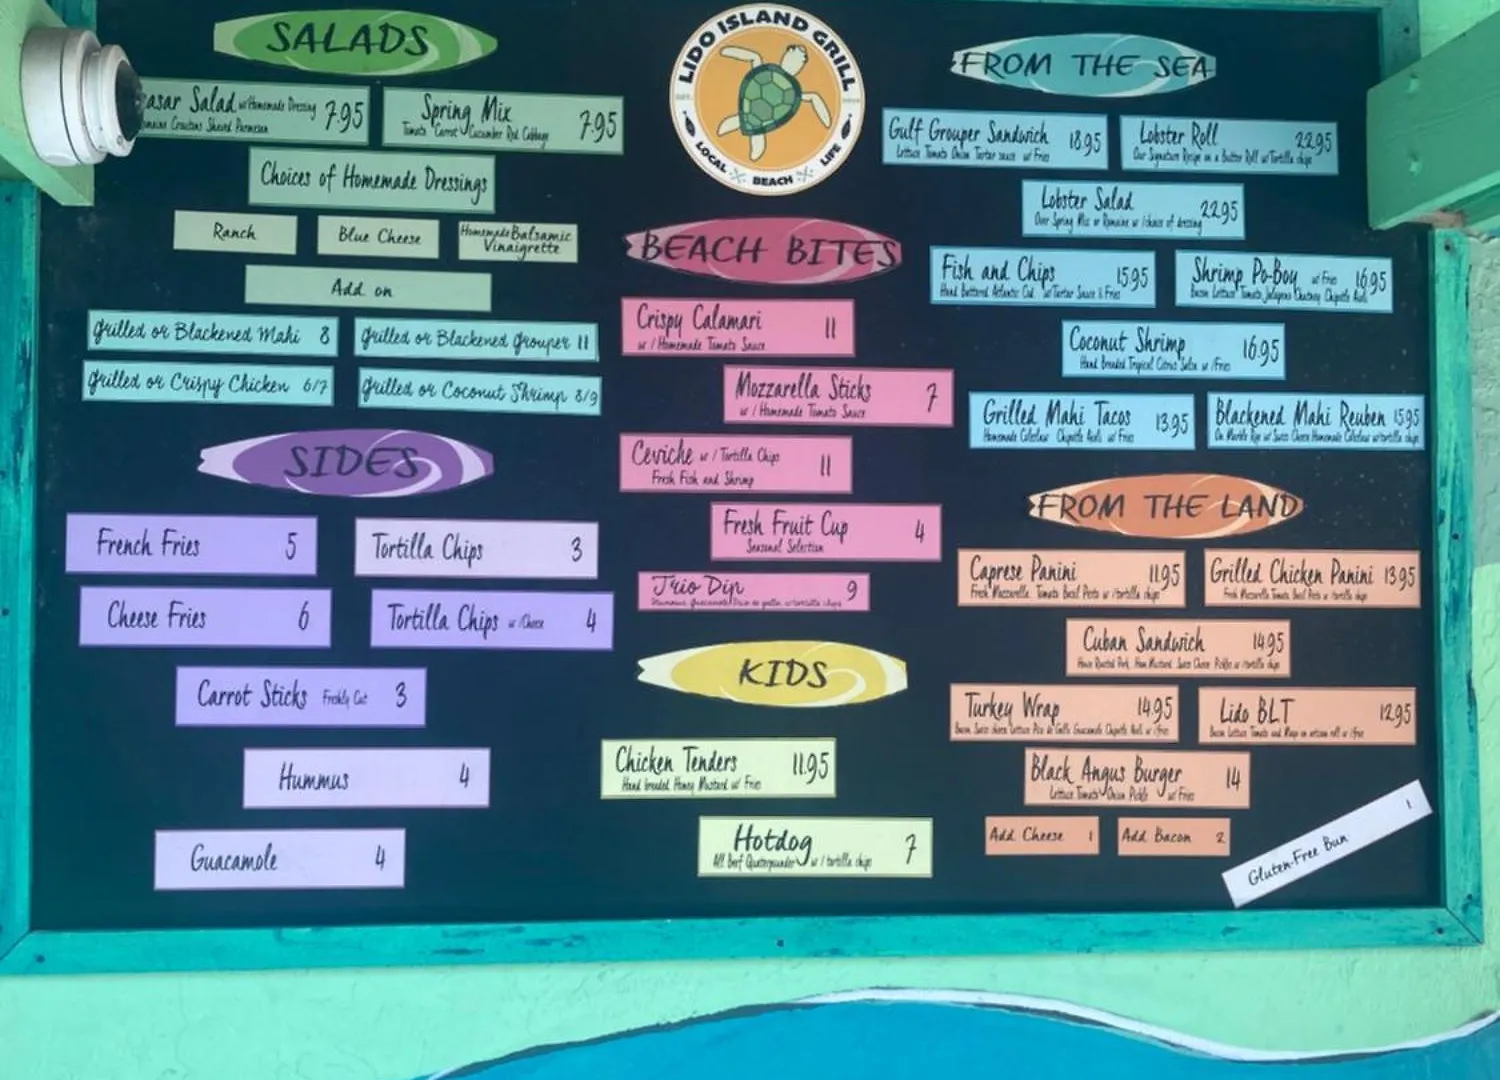 SALADS
asar Salad w/Homemade Dressing 7.95
Croutons Shaved Parmesan
Spring Mix 7.95
Tomato Carrot Cucumber Red Cabbage
Choices of Homemade Dressings
Ranch
Blue Cheese
Homemade Balsamic
Vinaigrette
Add on
Grilled or Blackened Mahi 8
Grilled or Blackened Grouper 11
Grilled or Crispy Chicken 6/7
Grilled or Coconut Shrimp 8/9
SIDES
French Fries 5
Tortilla Chips 3
Cheese Fries 6
Tortilla Chips w/Cheese 4
Carrot Sticks Freshly Cut 3
Hummus 4
Guacamole 4
LIDO ISLAND GRILL
LOCAL BEACH LIFE
BEACH BITES
Crispy Calamari 11
w/ Homemade Tomato Sauce
Mozzarella Sticks 7
w/ Homemade Tomato Sauce
Ceviche w/ Tortilla Chips 11
Fresh Fish and Shrimp
Fresh Fruit Cup 4
Seasonal Selection
Trio Dip 9
Hummus Guacamole Pico de gallo w/tortilla chips
KIDS
Chicken Tenders 11.95
Hand breaded Honey Mustard w/ Fries
Hotdog 7
All Beef Quarterpounder w/ tortilla chips
FROM THE SEA
Gulf Grouper Sandwich 18.95
Lettuce Tomato Onion Tartar sauce w/ Fries
Lobster Roll 22.95
Our Signature Recipe on a Butter Roll w/Tortilla chips
Lobster Salad 22.95
Over Spring Mix or Romaine w/ choice of dressing
Fish and Chips 15.95
Hand Battered Atlantic Cod w/Tartar Sauce & Fries
Shrimp Po-Boy w/ Fries 16.95
Bacon Lettuce Tomato Jalapeno Chutney Chipotle Aioli
Coconut Shrimp 16.95
Hand Breaded Tropical Citrus Salsa w/Fries
Grilled Mahi Tacos 13.95
Homemade Coleslaw Chipotle Aioli w/ Fries
Blackened Mahi Reuben 15.95
On Marble Rye w/ Swiss Cheese Homemade Coleslaw w/tortilla chips
FROM THE LAND
Caprese Panini 11.95
Fresh Mozzarella Tomato Basil Pesto w/tortilla chips
Grilled Chicken Panini 13.95
Fresh Mozzarella Tomato Basil Pesto w/tortilla chips
Cuban Sandwich 14.95
House Roasted Pork Ham Mustard Swiss Cheese Pickle w/tortilla chips
Turkey Wrap 14.95
Bacon Swiss cheese Lettuce Pico de Gallo Guacamole Chipotle Aioli w/fries
Lido BLT 12.95
Bacon Lettuce Tomato and Mayo on artisan roll w/fries
Black Angus Burger 14
Lettuce Tomato Onion Pickle w/Fries
Add Cheese 1
Add Bacon 2
Gluten-Free Bun 1